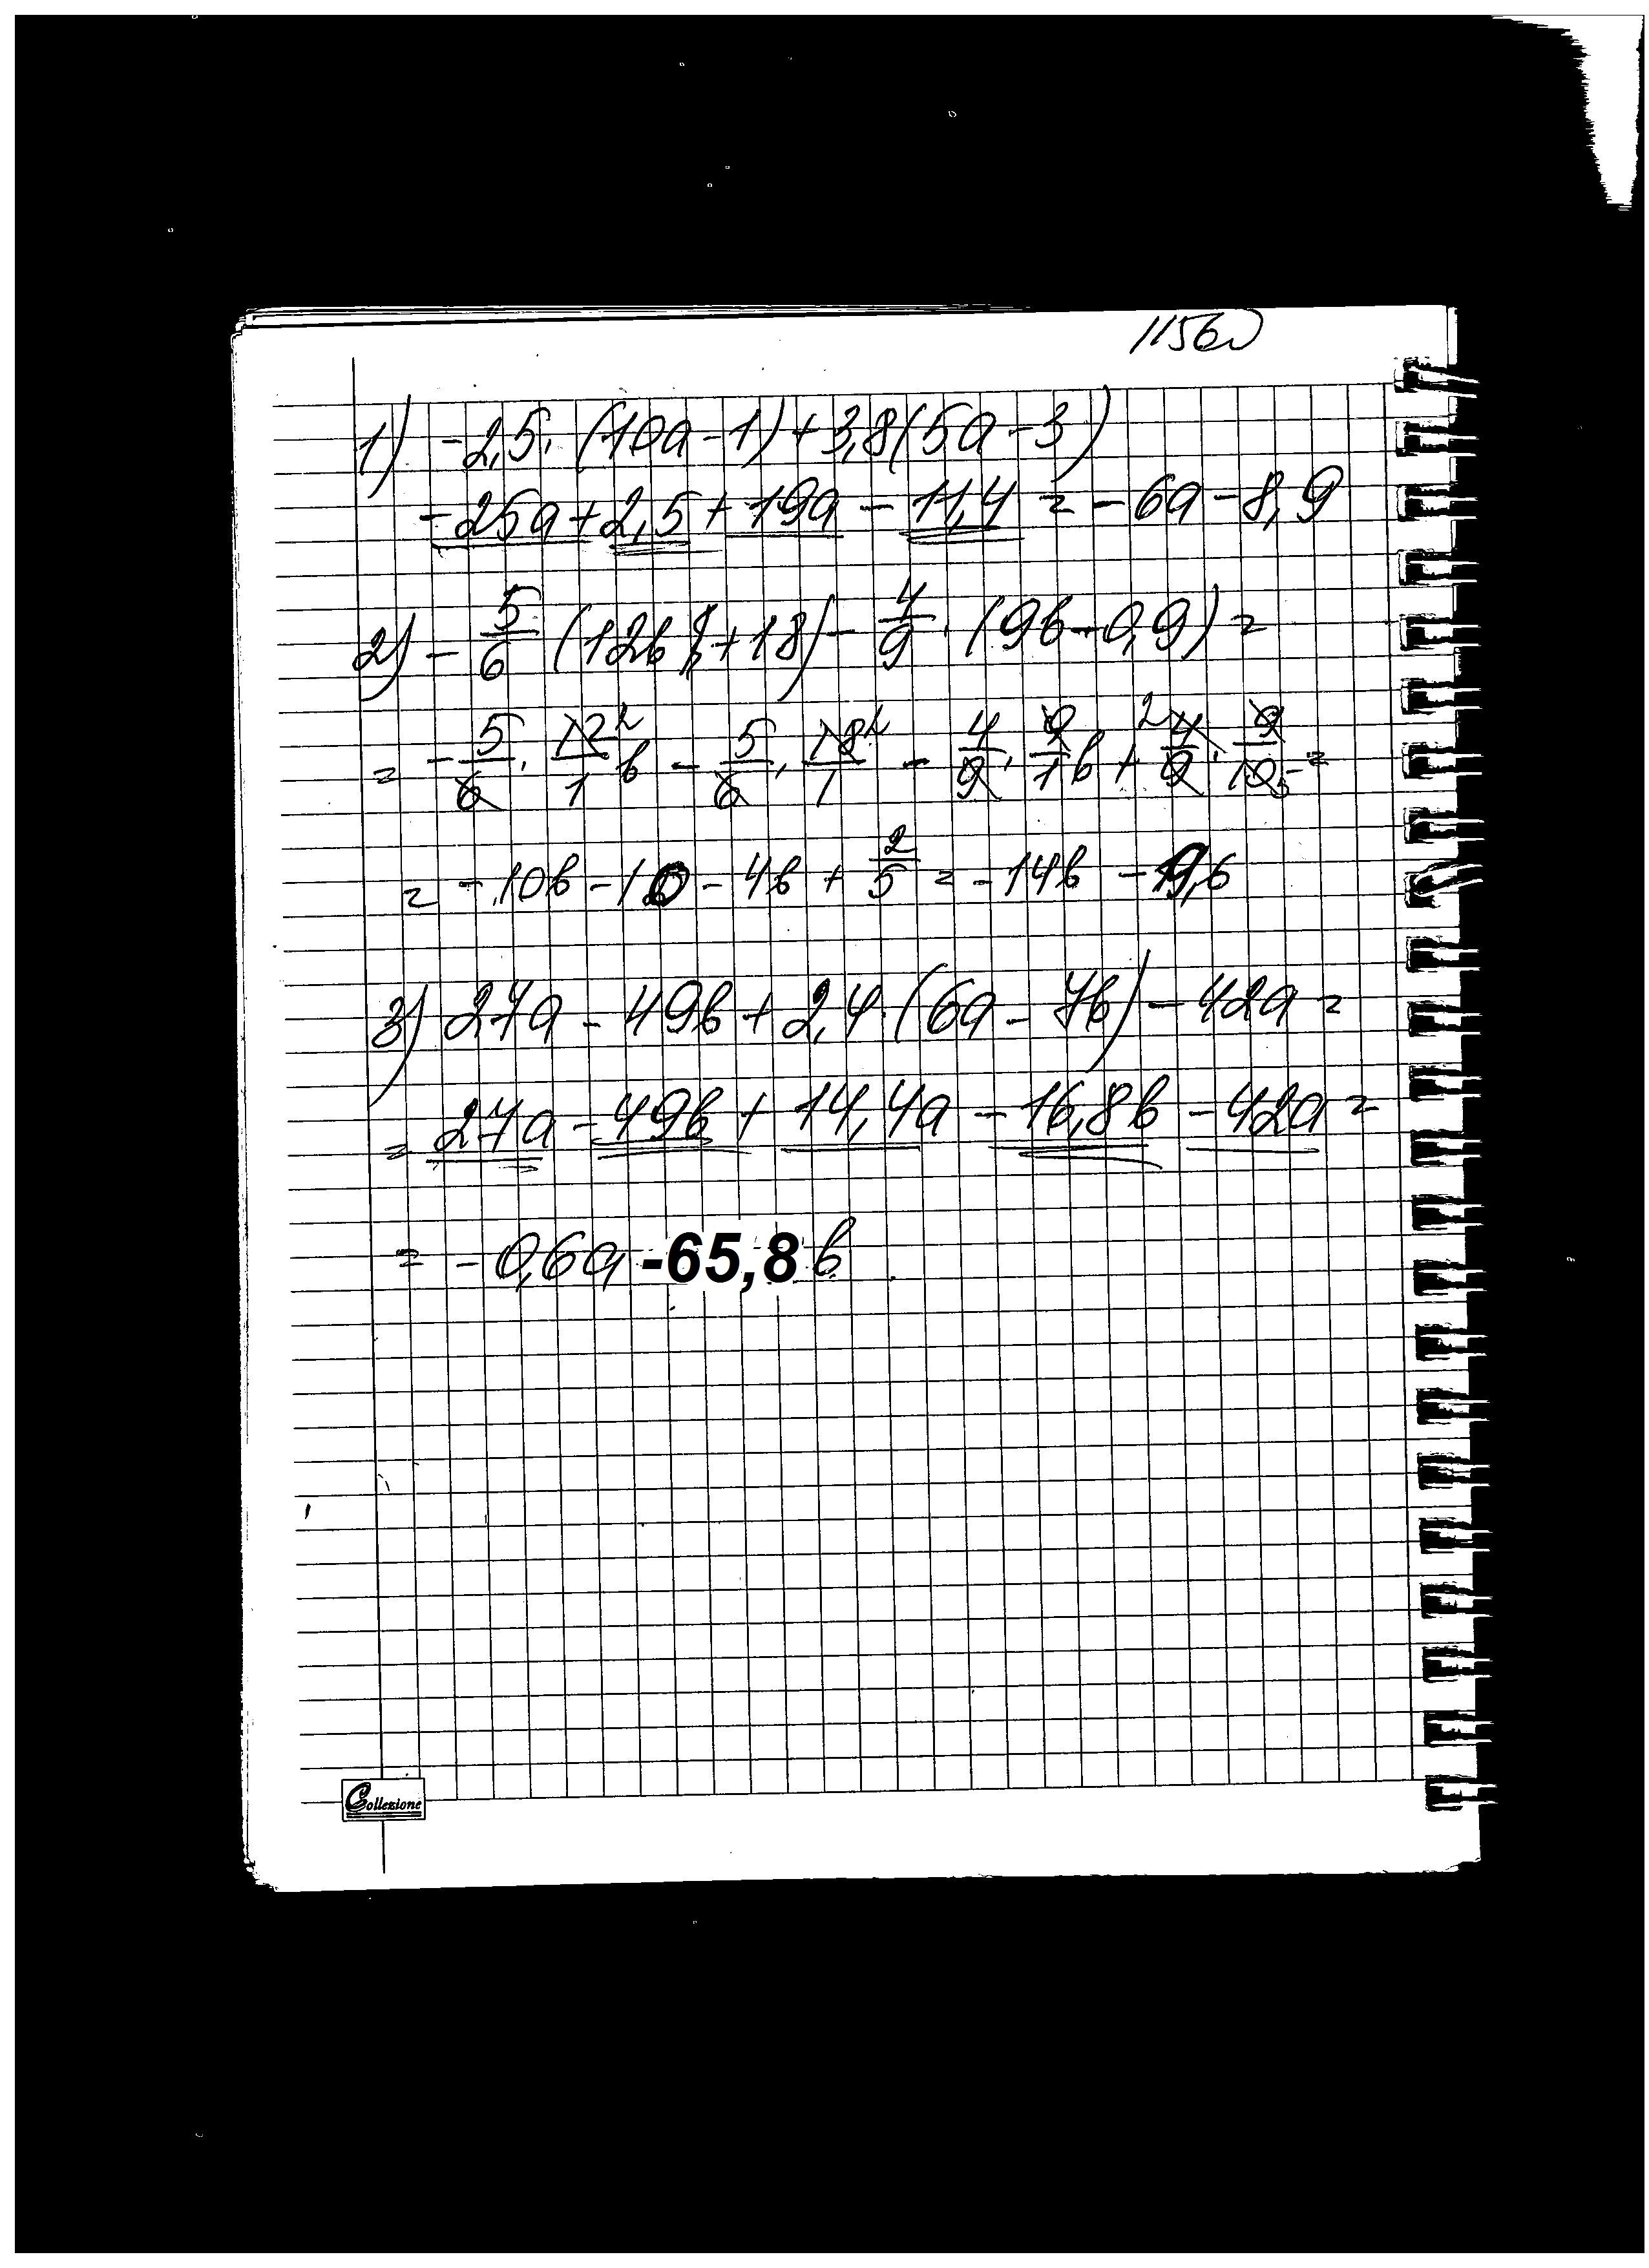 1156
1) -2,5·(10a-1)+3,8(5a-3)
-25a+2,5+19a-11,4=-6a-8,9
2) -5/6(12в+18)-4/9·(9в-0,9)=
=-5/6·12/1 2в-5/6·18/1 2-4/9·9/1в+2 4/9·9/10 5=
=-10в-10-4в+2/5=-14в-9,6
3) 27a-49в+2,4·(6a-7в)-42a=
=27a-49в+14,4a-16,8в-42a=
=-0,6a-65,8в
Collezione